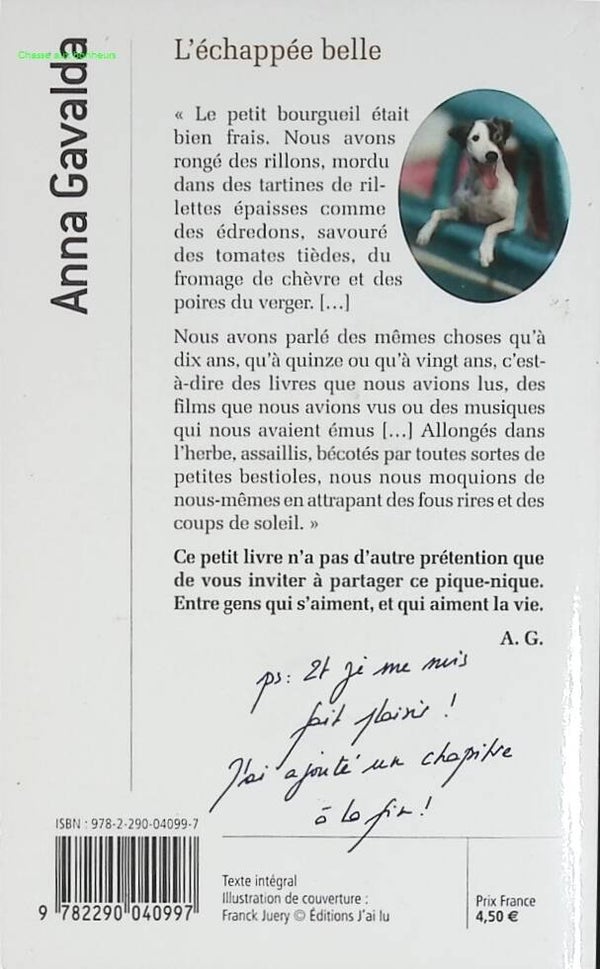 Chasse aux bonheurs
Anna Gavalda
L'échappée belle
« Le petit bourgueil était
bien frais. Nous avons
rongé des rillons, mordu
dans des tartines de ril-
lettes épaisses comme
des édredons, savouré
des tomates tièdes, du
fromage de chèvre et des
poires du verger. [...]
Nous avons parlé des mêmes choses qu'à
dix ans, qu'à quinze ou qu'à vingt ans, c'est-
à-dire des livres que nous avions lus, des
films que nous avions vus ou des musiques
qui nous avaient émus [...] Allongés dans
l'herbe, assaillis, bécotés par toutes sortes de
petites bestioles, nous nous moquions de
nous-mêmes en attrapant des fous rires et des
coups de soleil. »
Ce petit livre n'a pas d'autre prétention que
de vous inviter à partager ce pique-nique.
Entre gens qui s'aiment, et qui aiment la vie.
A. G.
ps: Et je me suis
fait plaisir !
J'ai ajouté un chapitre
à la fin !
ISBN : 978-2-290-04099-7
9 782290 040997
Texte intégral
Illustration de couverture :
Franck Juery © Éditions J'ai lu
Prix France
4,50 €